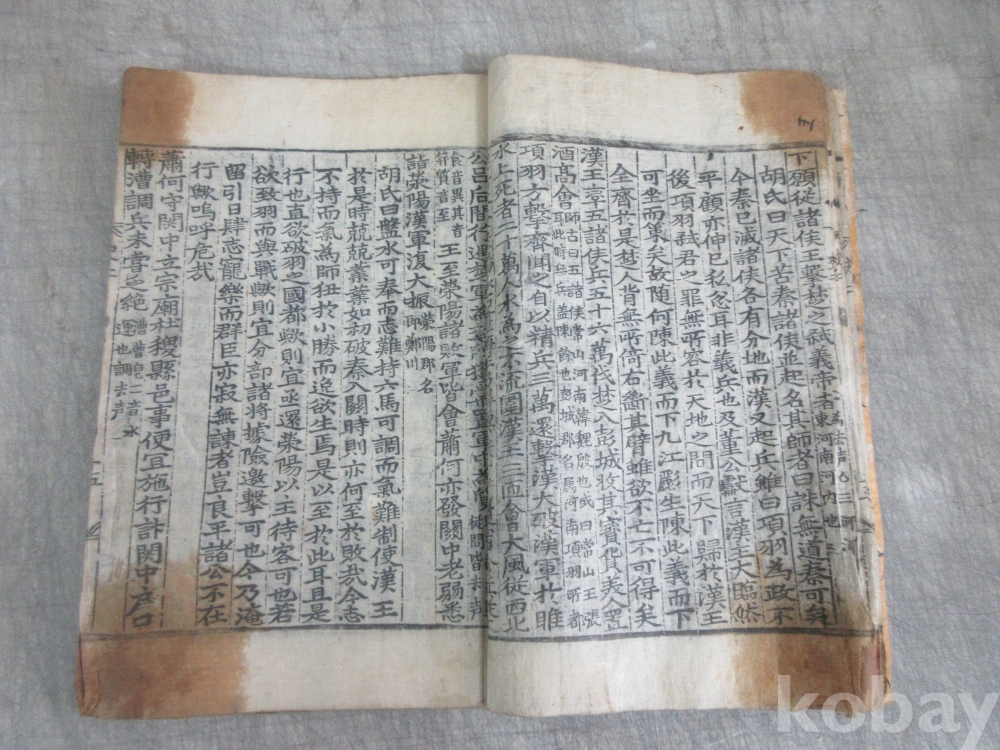 下願從諸侯王擊楚之弑義帝者
胡氏曰天下苦秦諸侯並起名其師者曰誅無道秦可矣
今秦已滅諸侯各有分地而漢又起兵雖曰項羽為政不
平顧亦伸已私忿耳非義兵也及董公獻言漢王大臨然
後項羽弑君之罪無所容於天地之間而天下歸於漢王
可坐而策矣故随何陳此義而下九江酈生陳此義而下
全齊於是楚人背無所倚右斷其臂雖欲不亡不可得矣
漢王率五諸侯兵五十六萬伐楚入彭城收其寶貨美置
酒高會師古曰五諸侯常山河南韓魏殷也或曰常山王張
耳此時兵盖陳餘也彭城郡名屬河南項羽所都
項羽方擊齊聞之自以精兵三萬還擊漢大破漢軍於睢
水上死者二十萬水為之不流圍漢王三匝會大風從西北
公呂后間行遇楚軍
食音異其音
王至滎陽諸敗軍皆會蕭何亦發關中老弱悉
詣滎陽漢軍復大振滎陽郡名
即鄭川
胡氏曰盤水可奉而志難持六馬可調而氣難制使漢王
於是時兢兢業業如初破秦入關時則亦何至於敗哉今志
不持而氣為師狃於小勝而逸欲生焉是以至於此耳且是
行也直欲破羽之國都歟則宜亟還滎陽以主待客可也若
欲致羽而與戰歟則宜分部諸將據險邀擊可也今乃淹
留引日肆志寵樂而群臣亦寂無諫者豈良平諸公不在
行歟嗚呼危哉
蕭何守關中立宗廟社稷縣邑事便宜施行計關中戶口
轉漕調兵未嘗乏絶漕音水
運也調去声
kobay